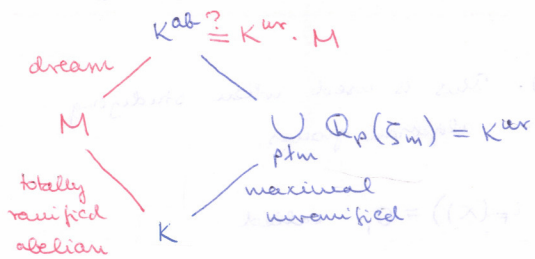 K^{ab} ?= K^{ur} · M
dream
M
∪_{p∤m} ℚ_p(ζ_m) = K^{ur}
totally
ramified
abelian
maximal
unramified
K